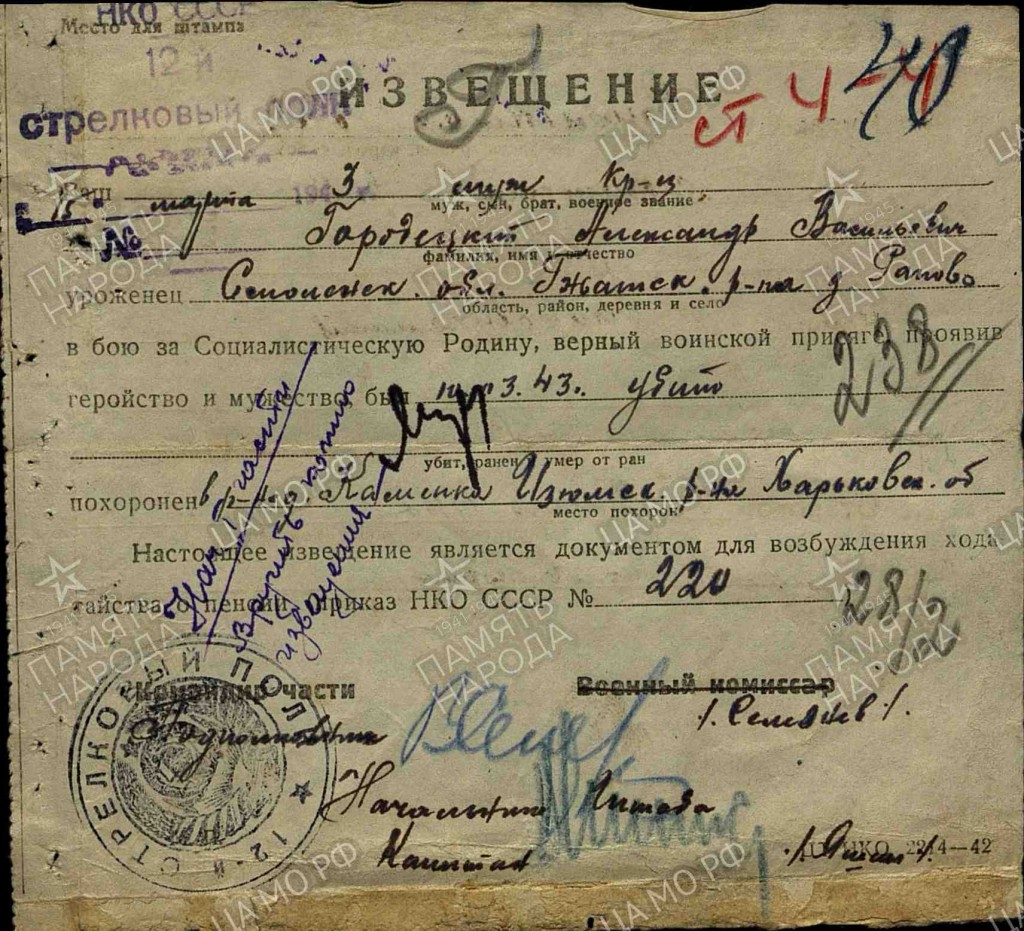 НКО СССР
Место для штампа
12-й
стрелковый полк
ИЗВЕЩЕНИЕ
ст 4-
40
Ваш муж Кр-ц
муж, сын, брат, военное звание
"15" марта 194 3
№
Городецкий Александр Васильевич
фамилия, имя и отчество
уроженец Смоленск. обл. Гжатск. р-на д. Рапово
область, район, деревня и село
в бою за Социалистическую Родину, верный воинской присяге, проявив
геройство и мужество, был 3.43г. убит
238
убит, ранен, умер от ран
похоронен в р-не Каменка Изюмск. р-на Харьковск. об
место похорон
Настоящее извещение является документом для возбуждения хода-
тайства о пенсии, приказ НКО СССР № 220
28/2
Нач. части
Вручить копию
извещения
Командир части
Военный комиссар
Подполковник
Начальник Штаба
Капитан
12-й СТРЕЛКОВЫЙ ПОЛК
4—42
ПАМЯТЬ НАРОДА
1941 1945
ЦА МО РФ